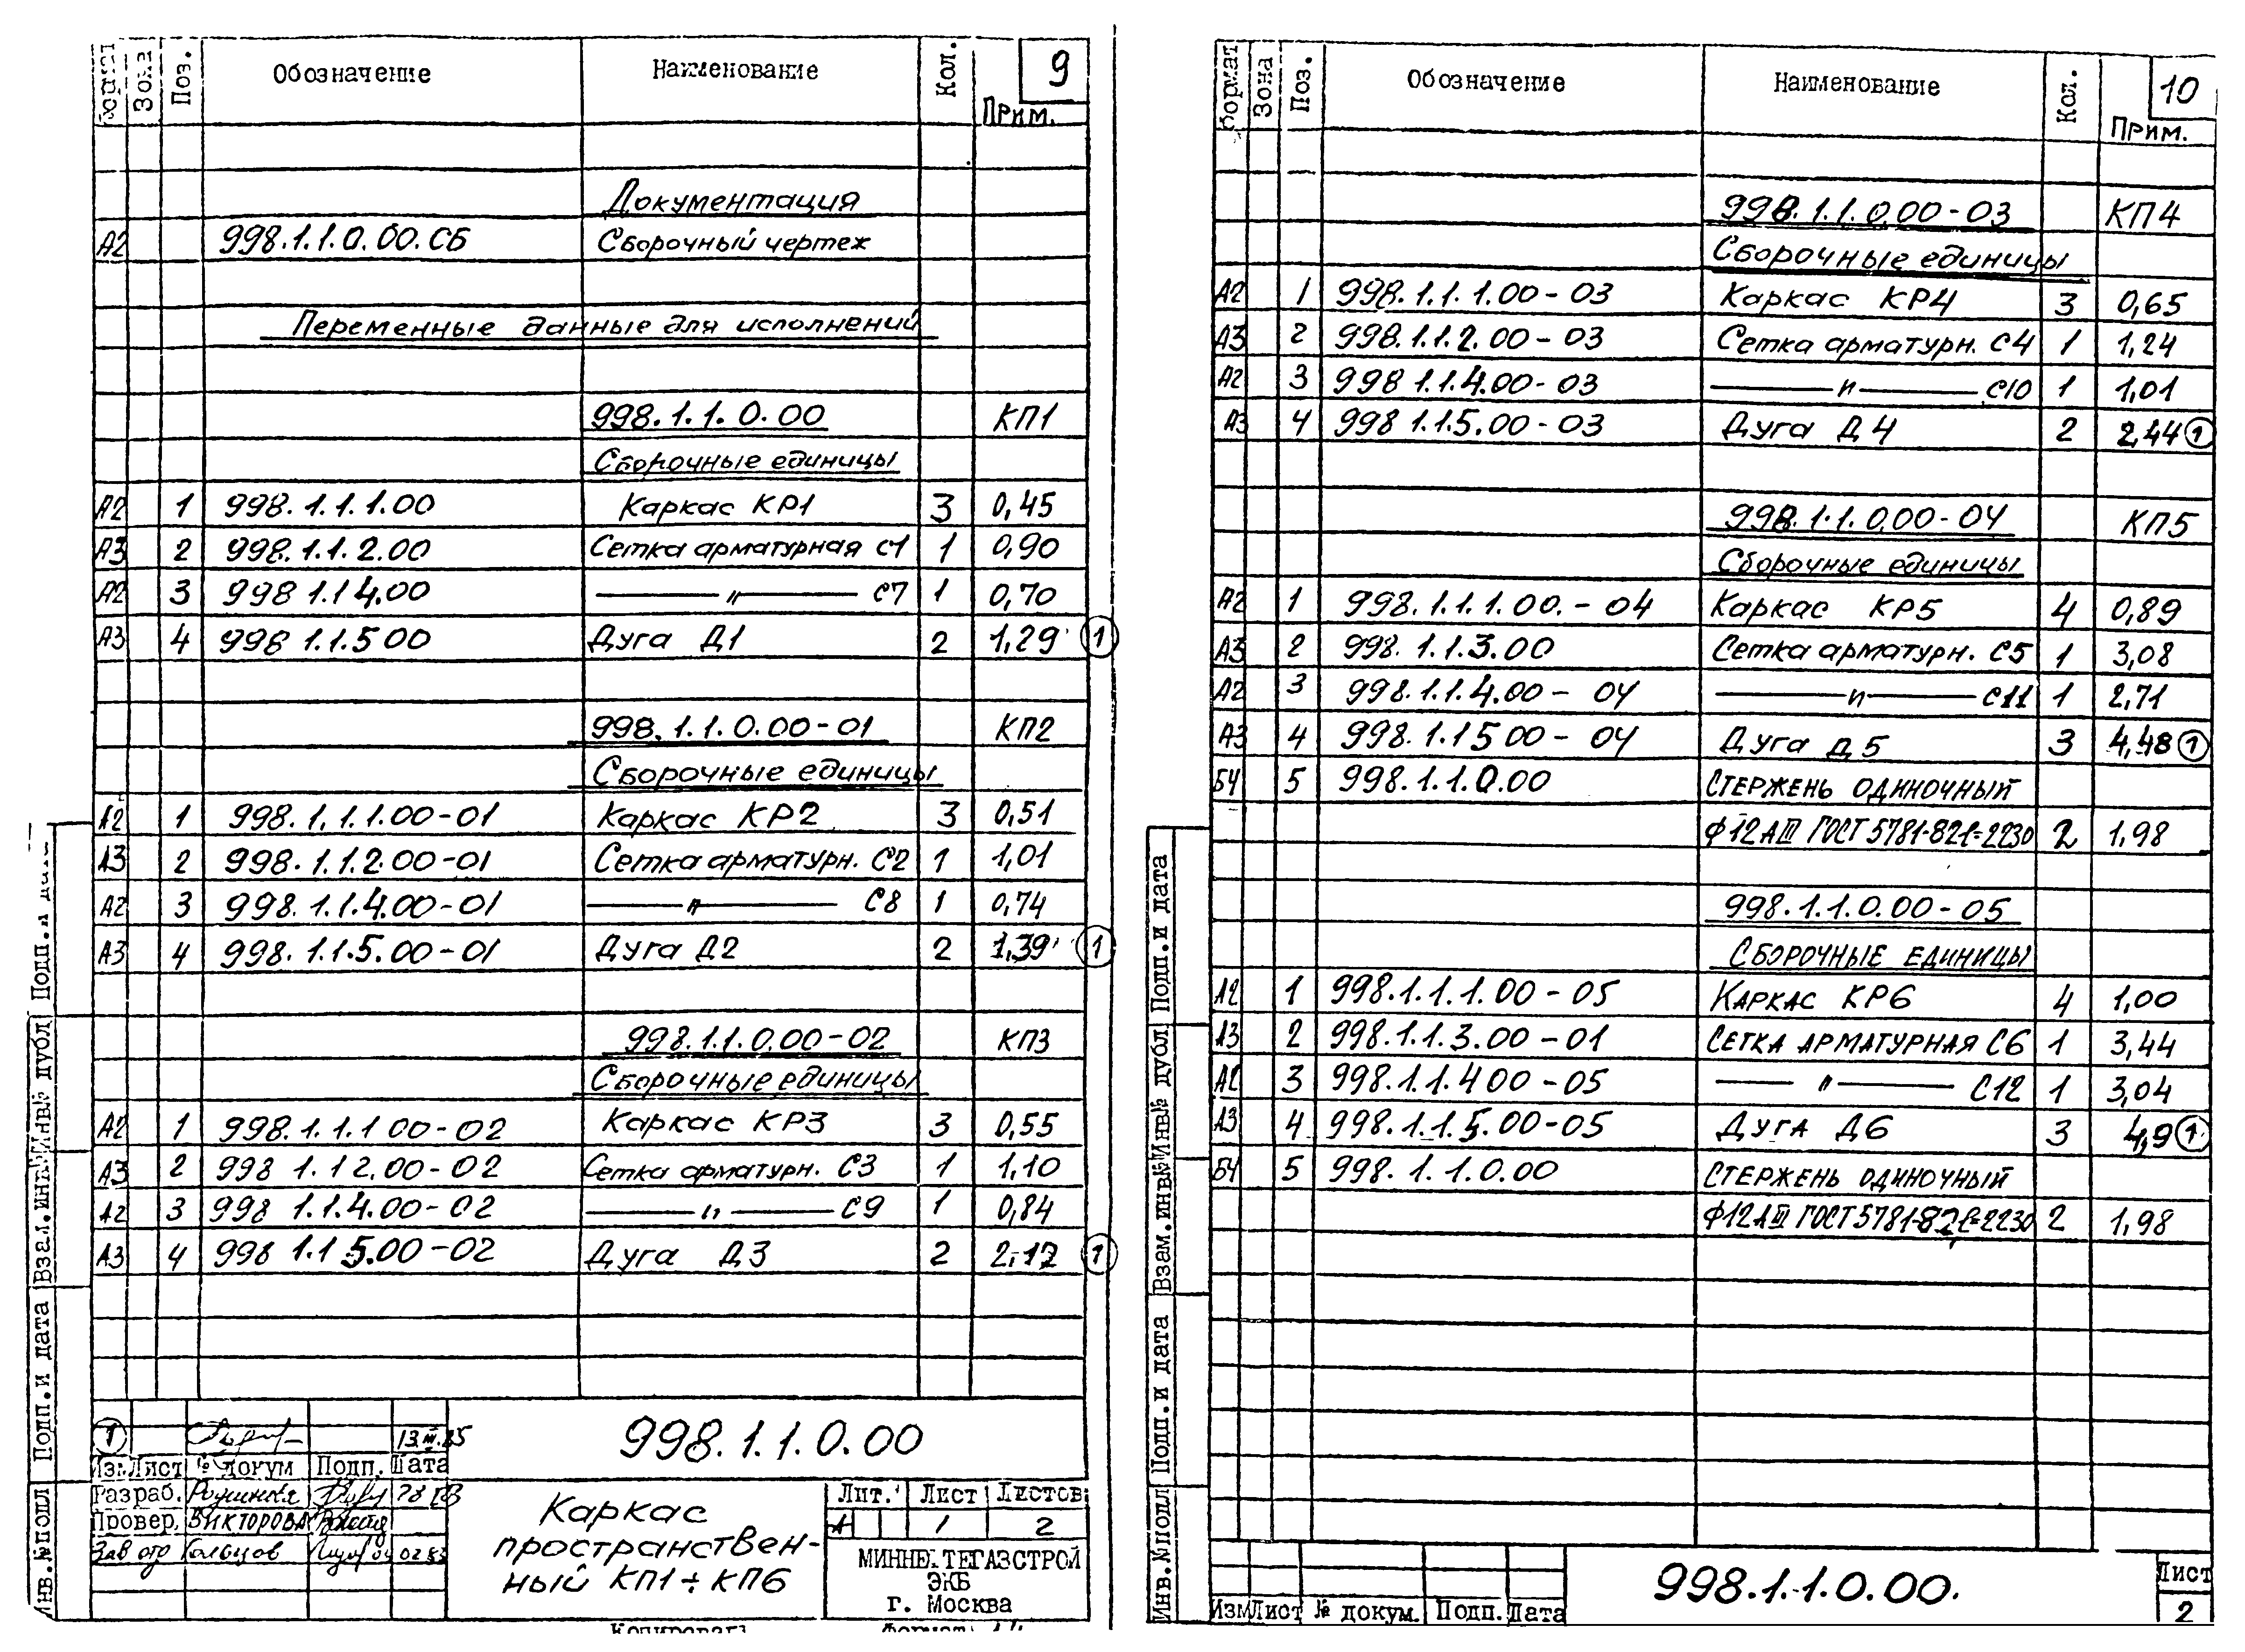 Формат Зона Поз. Обозначение Наименование Кол. Прим. 9
Документация
А2 998.1.1.0.00.СБ Сборочный чертеж
Переменные данные для исполнений
998.1.1.0.00 КП1
Сборочные единицы
А2 1 998.1.1.1.00 Каркас КР1 3 0,45
А3 2 998.1.1.2.00 Сетка арматурная С1 1 0,90
А2 3 998 1.1 4.00 — " — С7 1 0,70
А3 4 998 1.1.5 00 Дуга Д1 2 1,29 1
998.1.1.0.00-01 КП2
Сборочные единицы
А2 1 998.1.1.1.00-01 Каркас КР2 3 0,51
А3 2 998.1.1.2.00-01 Сетка арматурн. С2 1 1,01
А2 3 998.1.1.4.00-01 — " — С8 1 0,74
А3 4 998.1.1.5.00-01 Дуга Д2 2 1,39 1
998.1.1.0.00-02 КП3
Сборочные единицы
А2 1 998.1.1.1 00-02 Каркас КР3 3 0,55
А3 2 998 1.1 2.00-02 Сетка арматурн. С3 1 1,10
А2 3 998 1.1.4.00-02 — " — С9 1 0,84
А3 4 998 1.1 5.00-02 Дуга Д3 2 2,17 1
1 13.III.85
Изм Лист № докум Подп. Дата
998.1.1.0.00
Разраб.
Провер. Викторова
Зав отд Гольцов 04 02 83
Каркас
пространствен-
ный КП1÷КП6
Лит. Лист Листов
А 1 2
МИННЕФТЕГАЗСТРОЙ
ЭКБ
г. Москва
Копировал
Формат
Инв.№подл Подп.и дата Взам.инв.№ Инв.№ дубл Подп.и дата
Формат Зона Поз. Обозначение Наименование Кол. Прим. 10
998.1.1.0.00-03 КП4
Сборочные единицы
А2 1 998.1.1.1.00-03 Каркас КР4 3 0,65
А3 2 998.1.1.2.00-03 Сетка арматурн. С4 1 1,24
А2 3 998 1.1.4.00-03 — " — С10 1 1,01
А3 4 998 1.1.5.00-03 Дуга Д4 2 2,44 1
998.1.1.0.00-04 КП5
Сборочные единицы
А2 1 998.1.1.1.00.-04 Каркас КР5 4 0,89
А3 2 998.1.1.3.00 Сетка арматурн. С5 1 3,08
А2 3 998.1.1.4.00-04 — " — С11 1 2,71
А3 4 998.1.1 5 00-04 Дуга Д5 3 4,48 1
БЧ 5 998.1.1.0.00 Стержень одиночный
Ф12АIII ГОСТ 5781-82 ℓ=2230 2 1,98
998.1.1.0.00-05
Сборочные единицы
А2 1 998.1.1.1.00-05 Каркас КР6 4 1,00
А3 2 998.1.1.3.00-01 Сетка арматурная С6 1 3,44
А2 3 998.1.1.4 00-05 — " — С12 1 3,04
А3 4 998.1.1.5.00-05 Дуга Д6 3 4,9 1
БЧ 5 998.1.1.0.00 Стержень одиночный
Ф12АIII ГОСТ 5781-82 ℓ=2230 2 1,98
Изм Лист № докум. Подп. Дата
998.1.1.0.00.
Лист
2
Инв.№подл Подп.и дата Взам.инв.№ Инв.№ дубл Подп.и дата